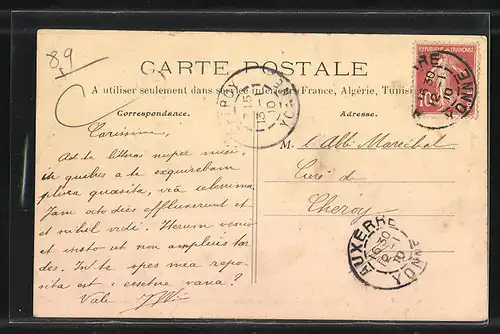 89
CARTE POSTALE
A utiliser seulement dans service intérieur (France, Algérie, Tunisie
Correspondance.
Adresse.
REPUBLIQUE FRANCAISE
10
Carissime
Ad te litteras nuper misi,
in quibus a te exquirebam
plura quaesita, via celerrima,
Jam octo dies effluxerunt et
et nihil vidi. Iterum venio
et insto ut non amplius tar
des. In te spes mea repo
sita est : essetne vana ?
Vale
M. l'Abbé Maréchal
Curé de
Chéroy
CHEROY
15
13-1
10
YONNE
AUXERRE
16 30
12-1
10
YONNE